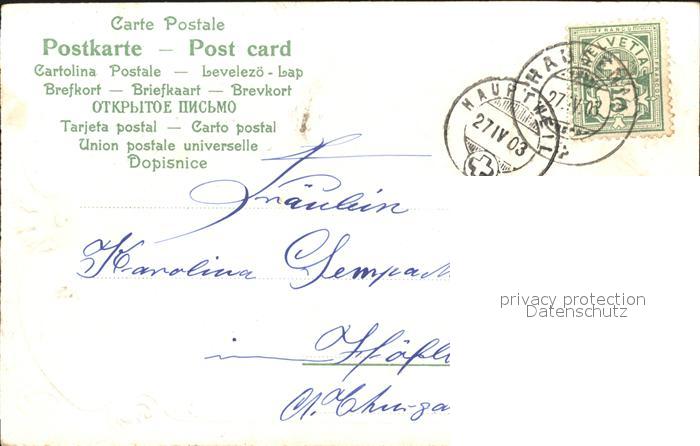 Carte Postale
Postkarte — Post card
Cartolina Postale — Levelezö - Lap
Brefkort — Briefkaart — Brevkort
ОТКРЫТОЕ ПИСЬМО
Tarjeta postal — Carto postal
Union postale universelle
Dopisnice
FRANCO
HELVETIA
HAUPTWEIL
27 IV 03
HAUPTWEIL
27 IV 03
Fräulein
Karolina
in
privacy protection
Datenschutz